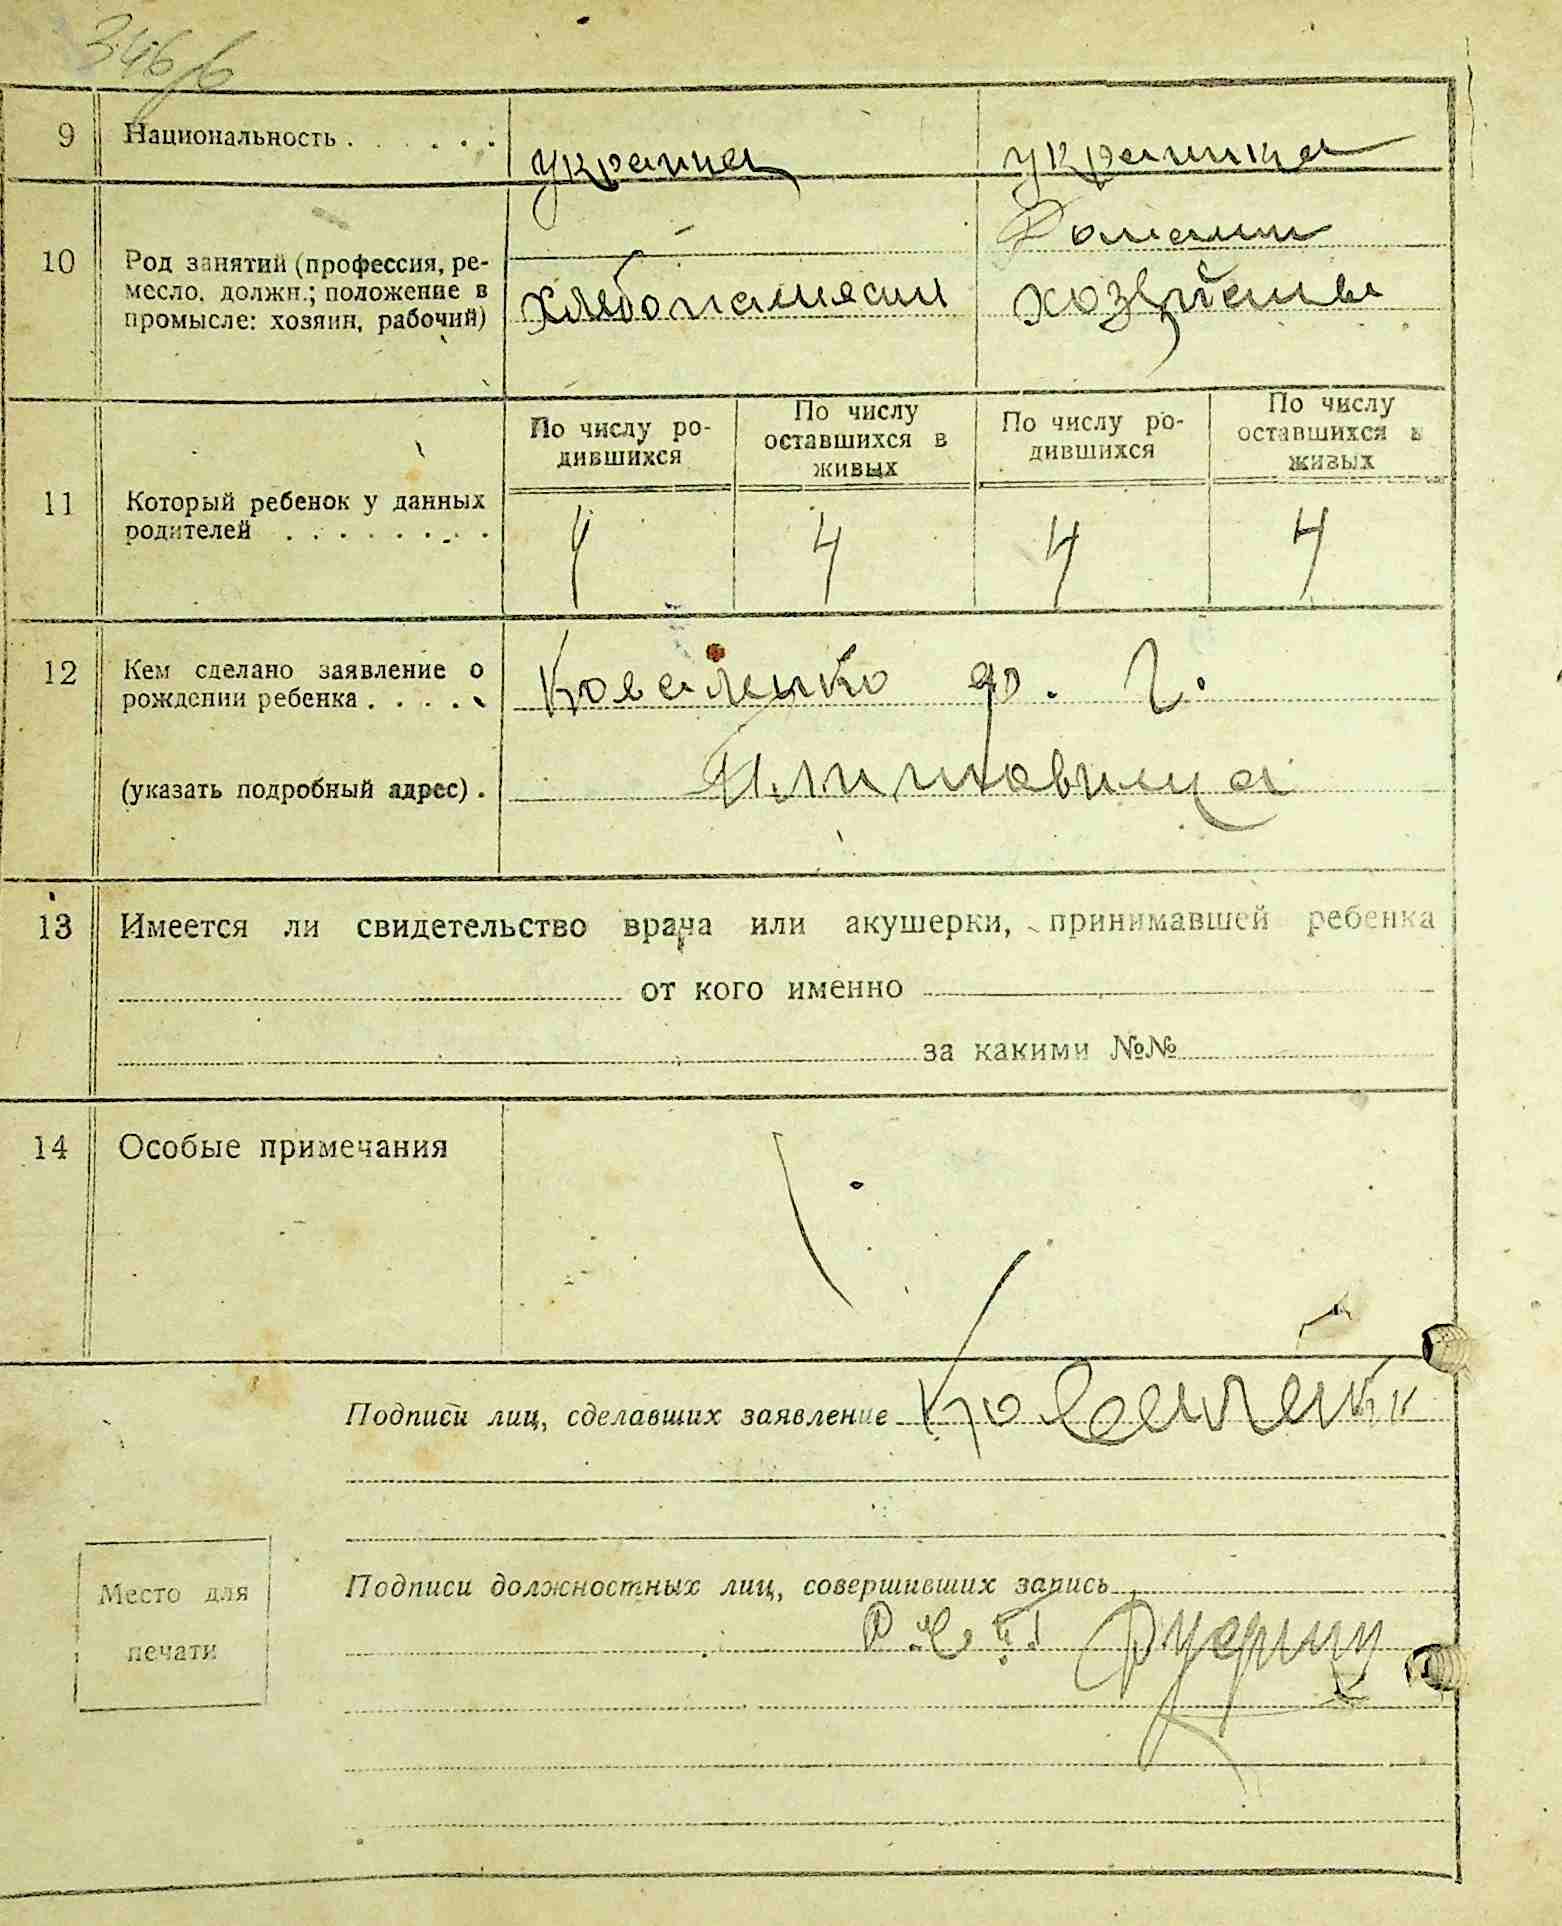 346/6
9 Национальность . . . . . . украинец украинка
Домашн
10 Род занятий (профессия, ре-
месло, должн.; положение в
промысле: хозяин, рабочий)
хлебопашест хозяйства
По числу ро-
дившихся
По числу
оставшихся в
живых
По числу ро-
дившихся
По числу
оставшихся в
живых
11 Который ребенок у данных
родителей . . . . . . . .
4 4 4 4
12 Кем сделано заявление о
рождении ребенка . . . . .
Коваленко Ф. Г.
(указать подробный адрес) .
13 Имеется ли свидетельство врача или акушерки, принимавшей ребенка
от кого именно
за какими №№
14 Особые примечания
Подписи лиц, сделавших заявление Коваленко
Подписи должностных лиц, совершивших запись
Место для
печати